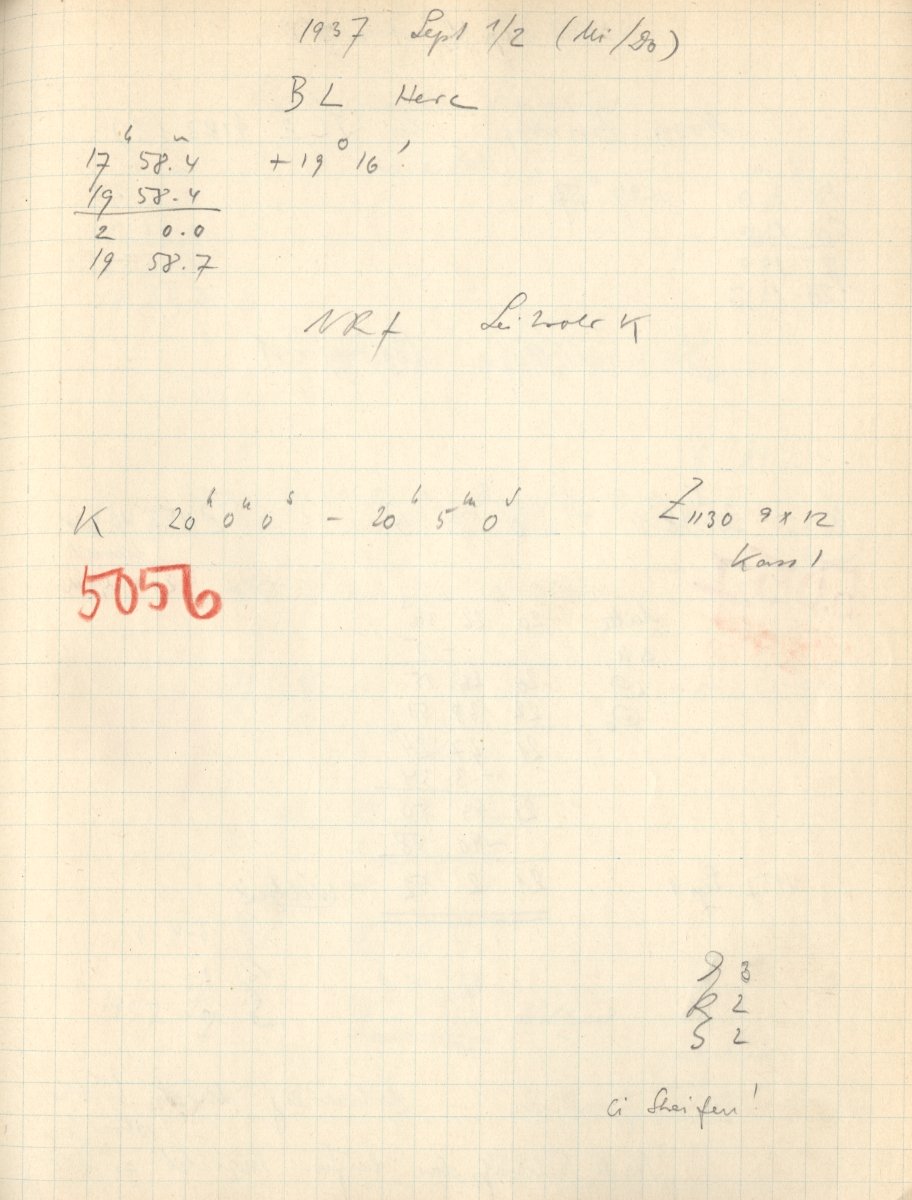 1937 Sept 1/2 (Mi/Do)
BL Herc
17ʰ 58.4ᵐ +19° 16'
19 58.4
2 0.0
19 58.7
NRf
K 20ʰ 0ᵐ 0ˢ – 20ʰ 5ᵐ 0ˢ Z1130 9x12
Kass 1
5056
3
R 2
S 2
ci Streifen!